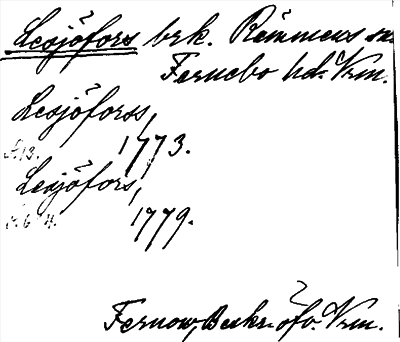 Lesjöfors brk. Rämmens sn
Fernebo hd. Vrm.
Lesjöforss,
A.13. 1773.
Lesjöfors,
1779.
Fernow, Beskr. öfv. Vrm.